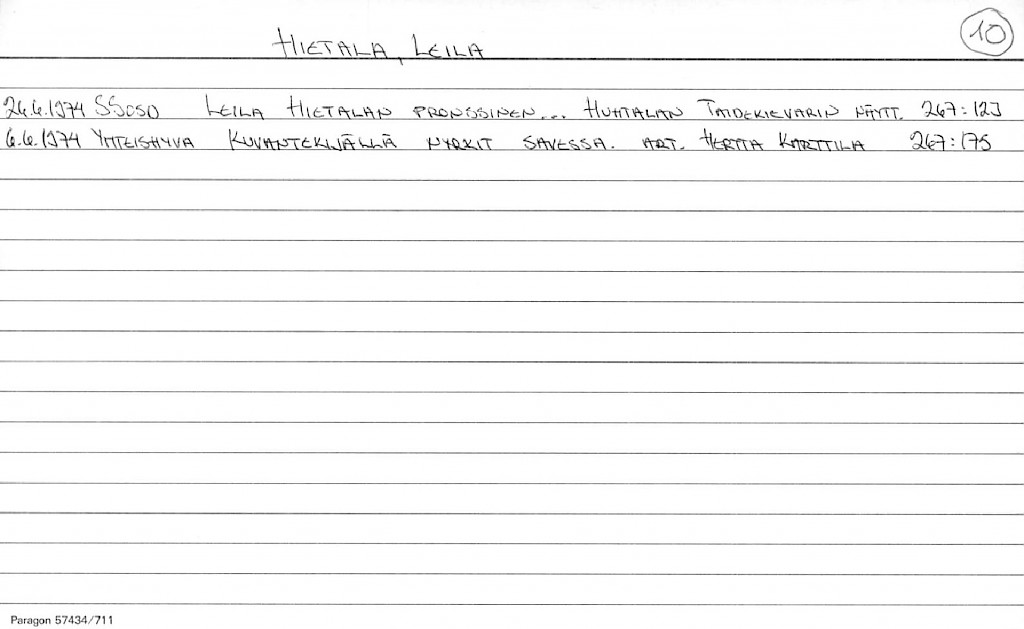 HIETALA, LEILA
10
26.6.1974 SSOSD LEILA HIETALAN PRONSSINEN... HUHTALAN TAIDEKIEVARIN NÄYTT. 267:129
6.6.1974 YHTEISHYVA KUVANTEKIJÄLLÄ NYRKIT SAVESSA. ART. HERTTA KARTTILA 267:175
Paragon 57434/711